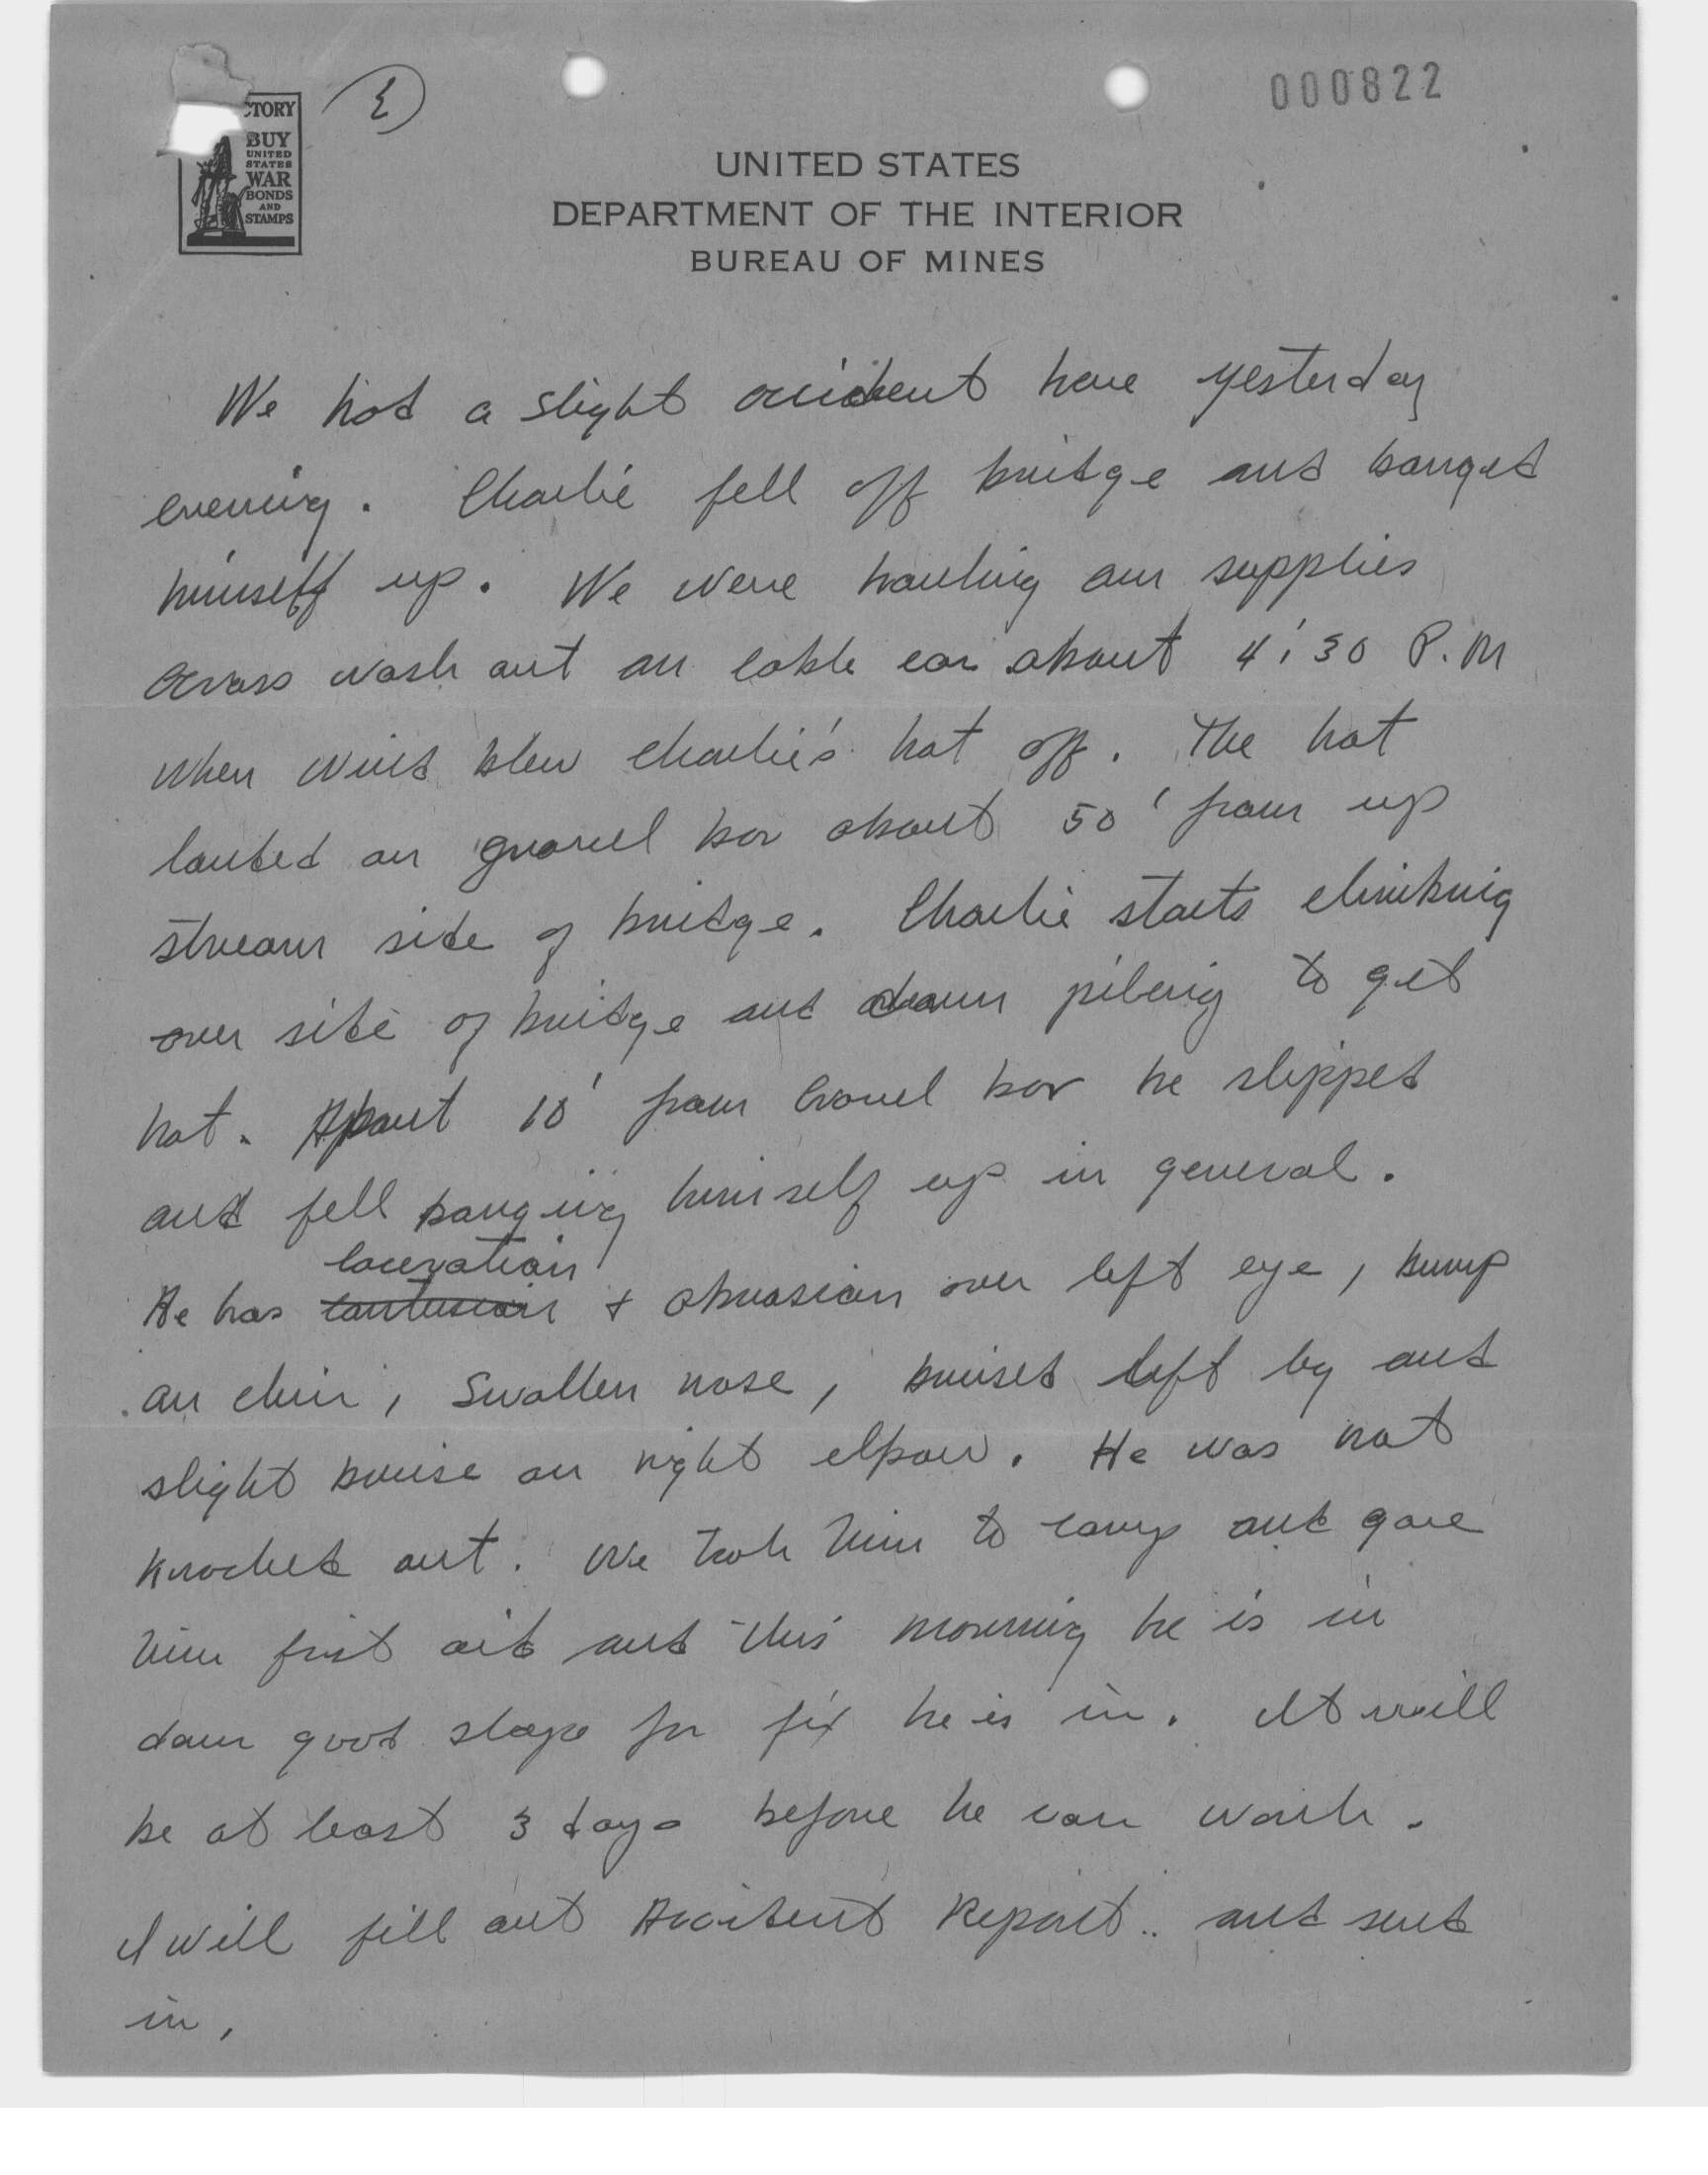 CTORY
BUY
UNITED
STATES
WAR
BONDS
AND
STAMPS
000822
UNITED STATES
DEPARTMENT OF THE INTERIOR
BUREAU OF MINES
We had a slight accident here yesterday
evening. Charlie fell off bridge and banged
himself up. We were hauling our supplies
across wash out on cable car about 4:30 P.M
when wind blew Charlie's hat off. The hat
landed on gravel bar about 50' from up
stream side of bridge. Charlie starts climbing
over side of bridge and down piling to get
hat. About 10' from Gravel bar he slipped
and fell banging himself up in general.
laceration
He has contusion & abrasion over left eye, bump
on chin, swollen nose, bruised left leg and
slight bruise on right elbow. He was not
knocked out. We took him to camp and gave
him first aid and this morning he is in
dam good shape for fix he is in. It will
be at least 3 days before he can work.
I will fill out Accident Report.. and send
in,